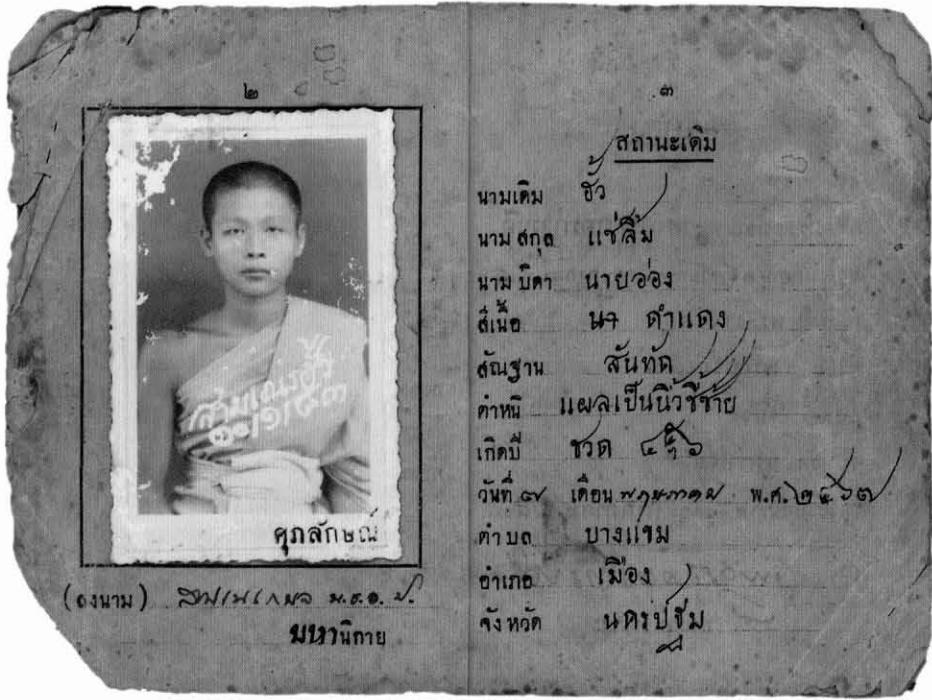 ๒
สามเณรฮั้ว
ศุภลักษณ์
(ลงนาม)
มหานิกาย
๓
สถานะเดิม
นามเดิม ฮั้ว
นามสกุล แซ่ลิ้ม
นามบิดา นายอ๋อง
สีเนื้อ ดำแดง
สัณฐาน สันทัด
ตำหนิ แผลเป็นนิ้วชี้ซ้าย
เกิดปี ชวด
วันที่ ๗ เดือน พฤษภาคม พ.ศ. ๒๔๖๗
ตำบล บางแขม
อำเภอ เมือง
จังหวัด นครปฐม